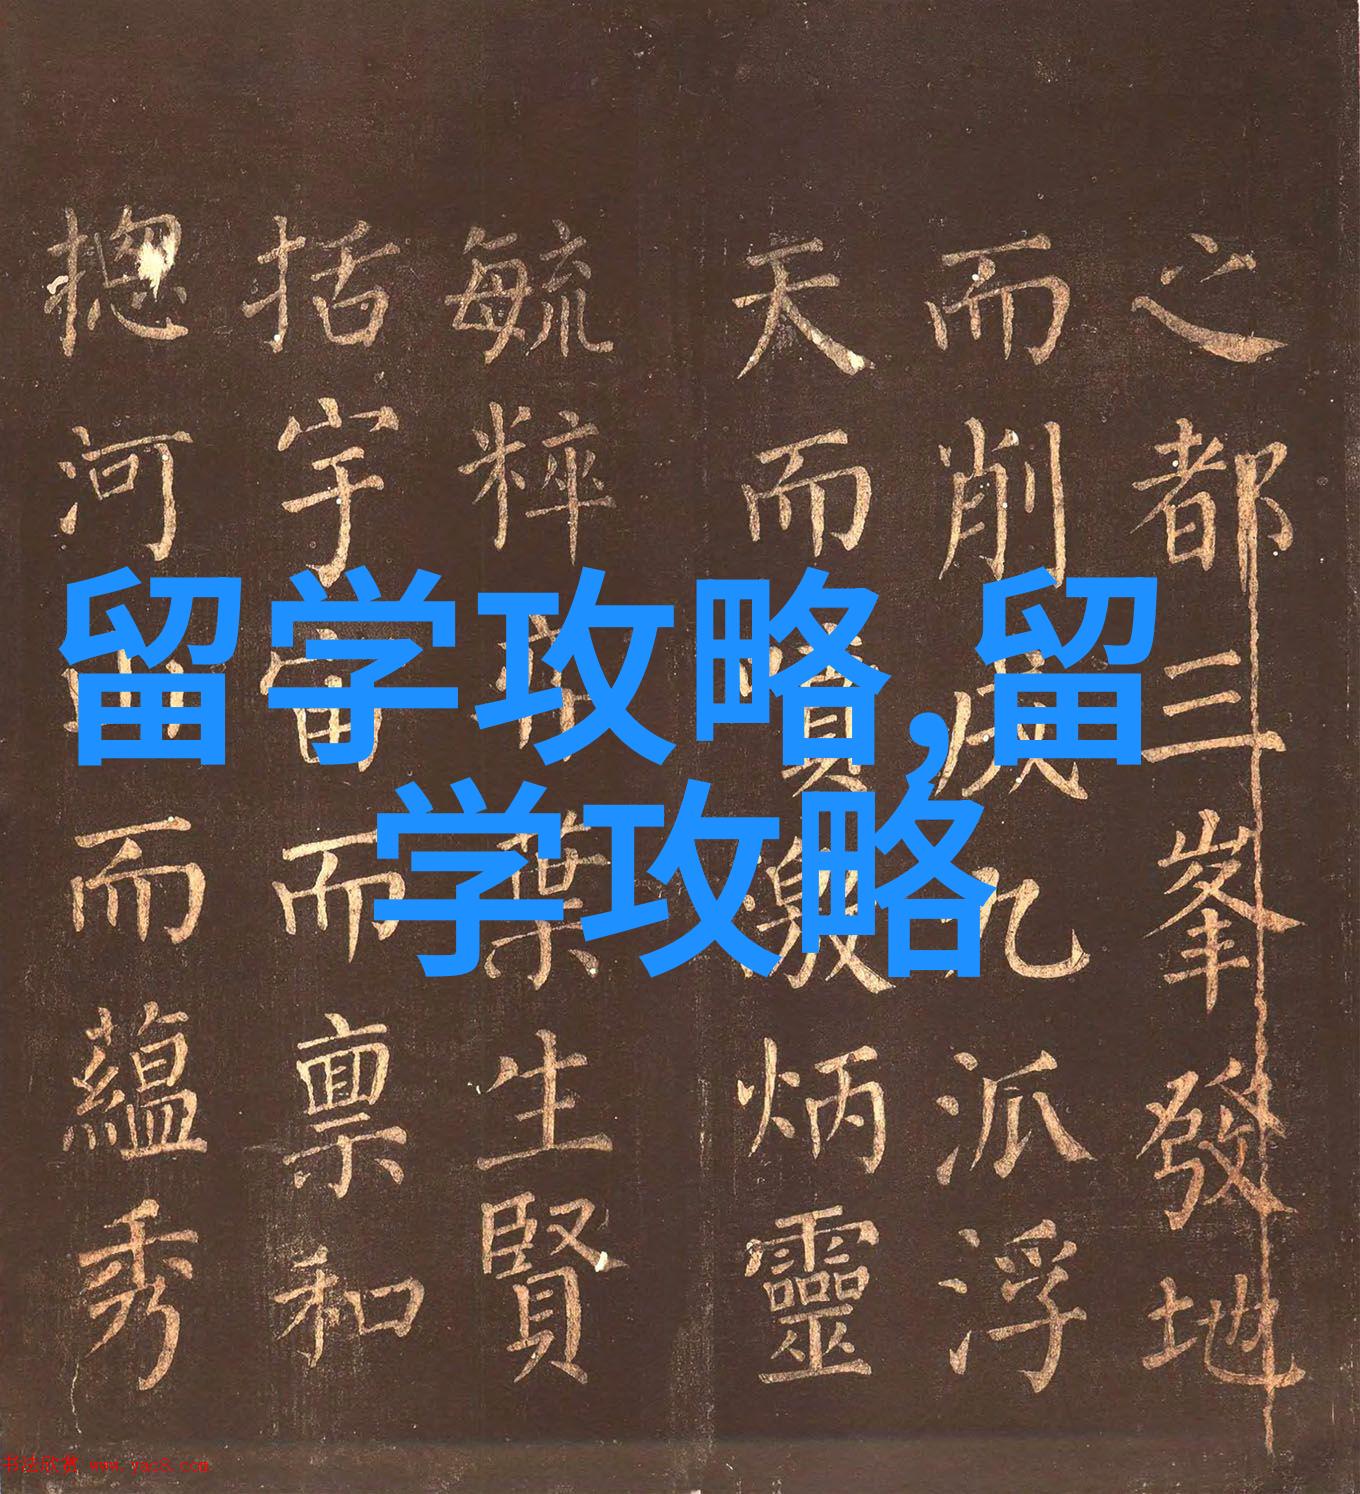 之都三峯發地
而削成九派浮
天而噴激炳靈
毓粹葉生賢
括宇宙而禀和
揔河山而蘊秀
留学攻略,留
学攻略
书法欣赏 www.yac8.com